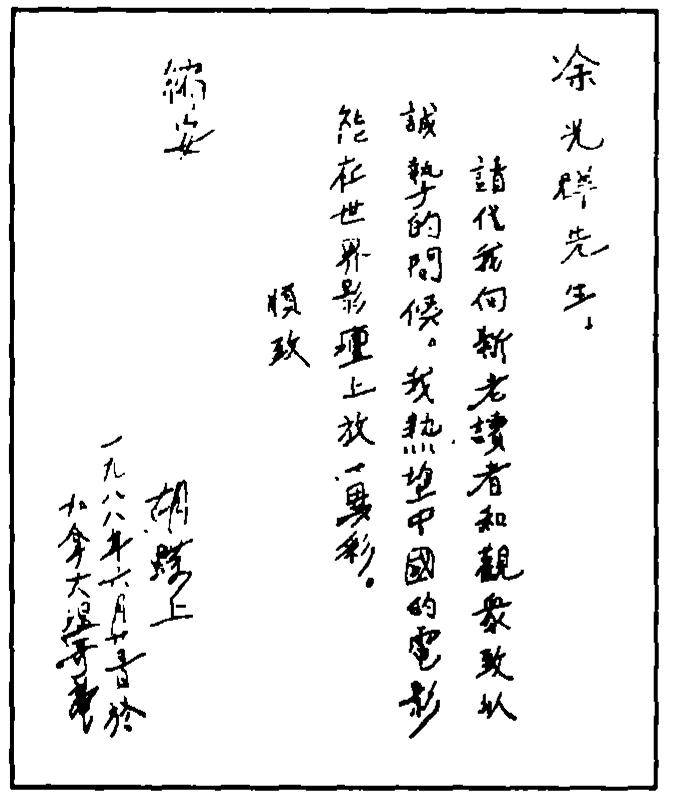 涂光群先生、
請代我向新老讀者和觀衆致以
誠摯的問候。我熱望中國的電影
能在世界影壇上放一異彩。
順致
編安
胡蝶上
一九八八年六月廿日於
加拿大温哥華